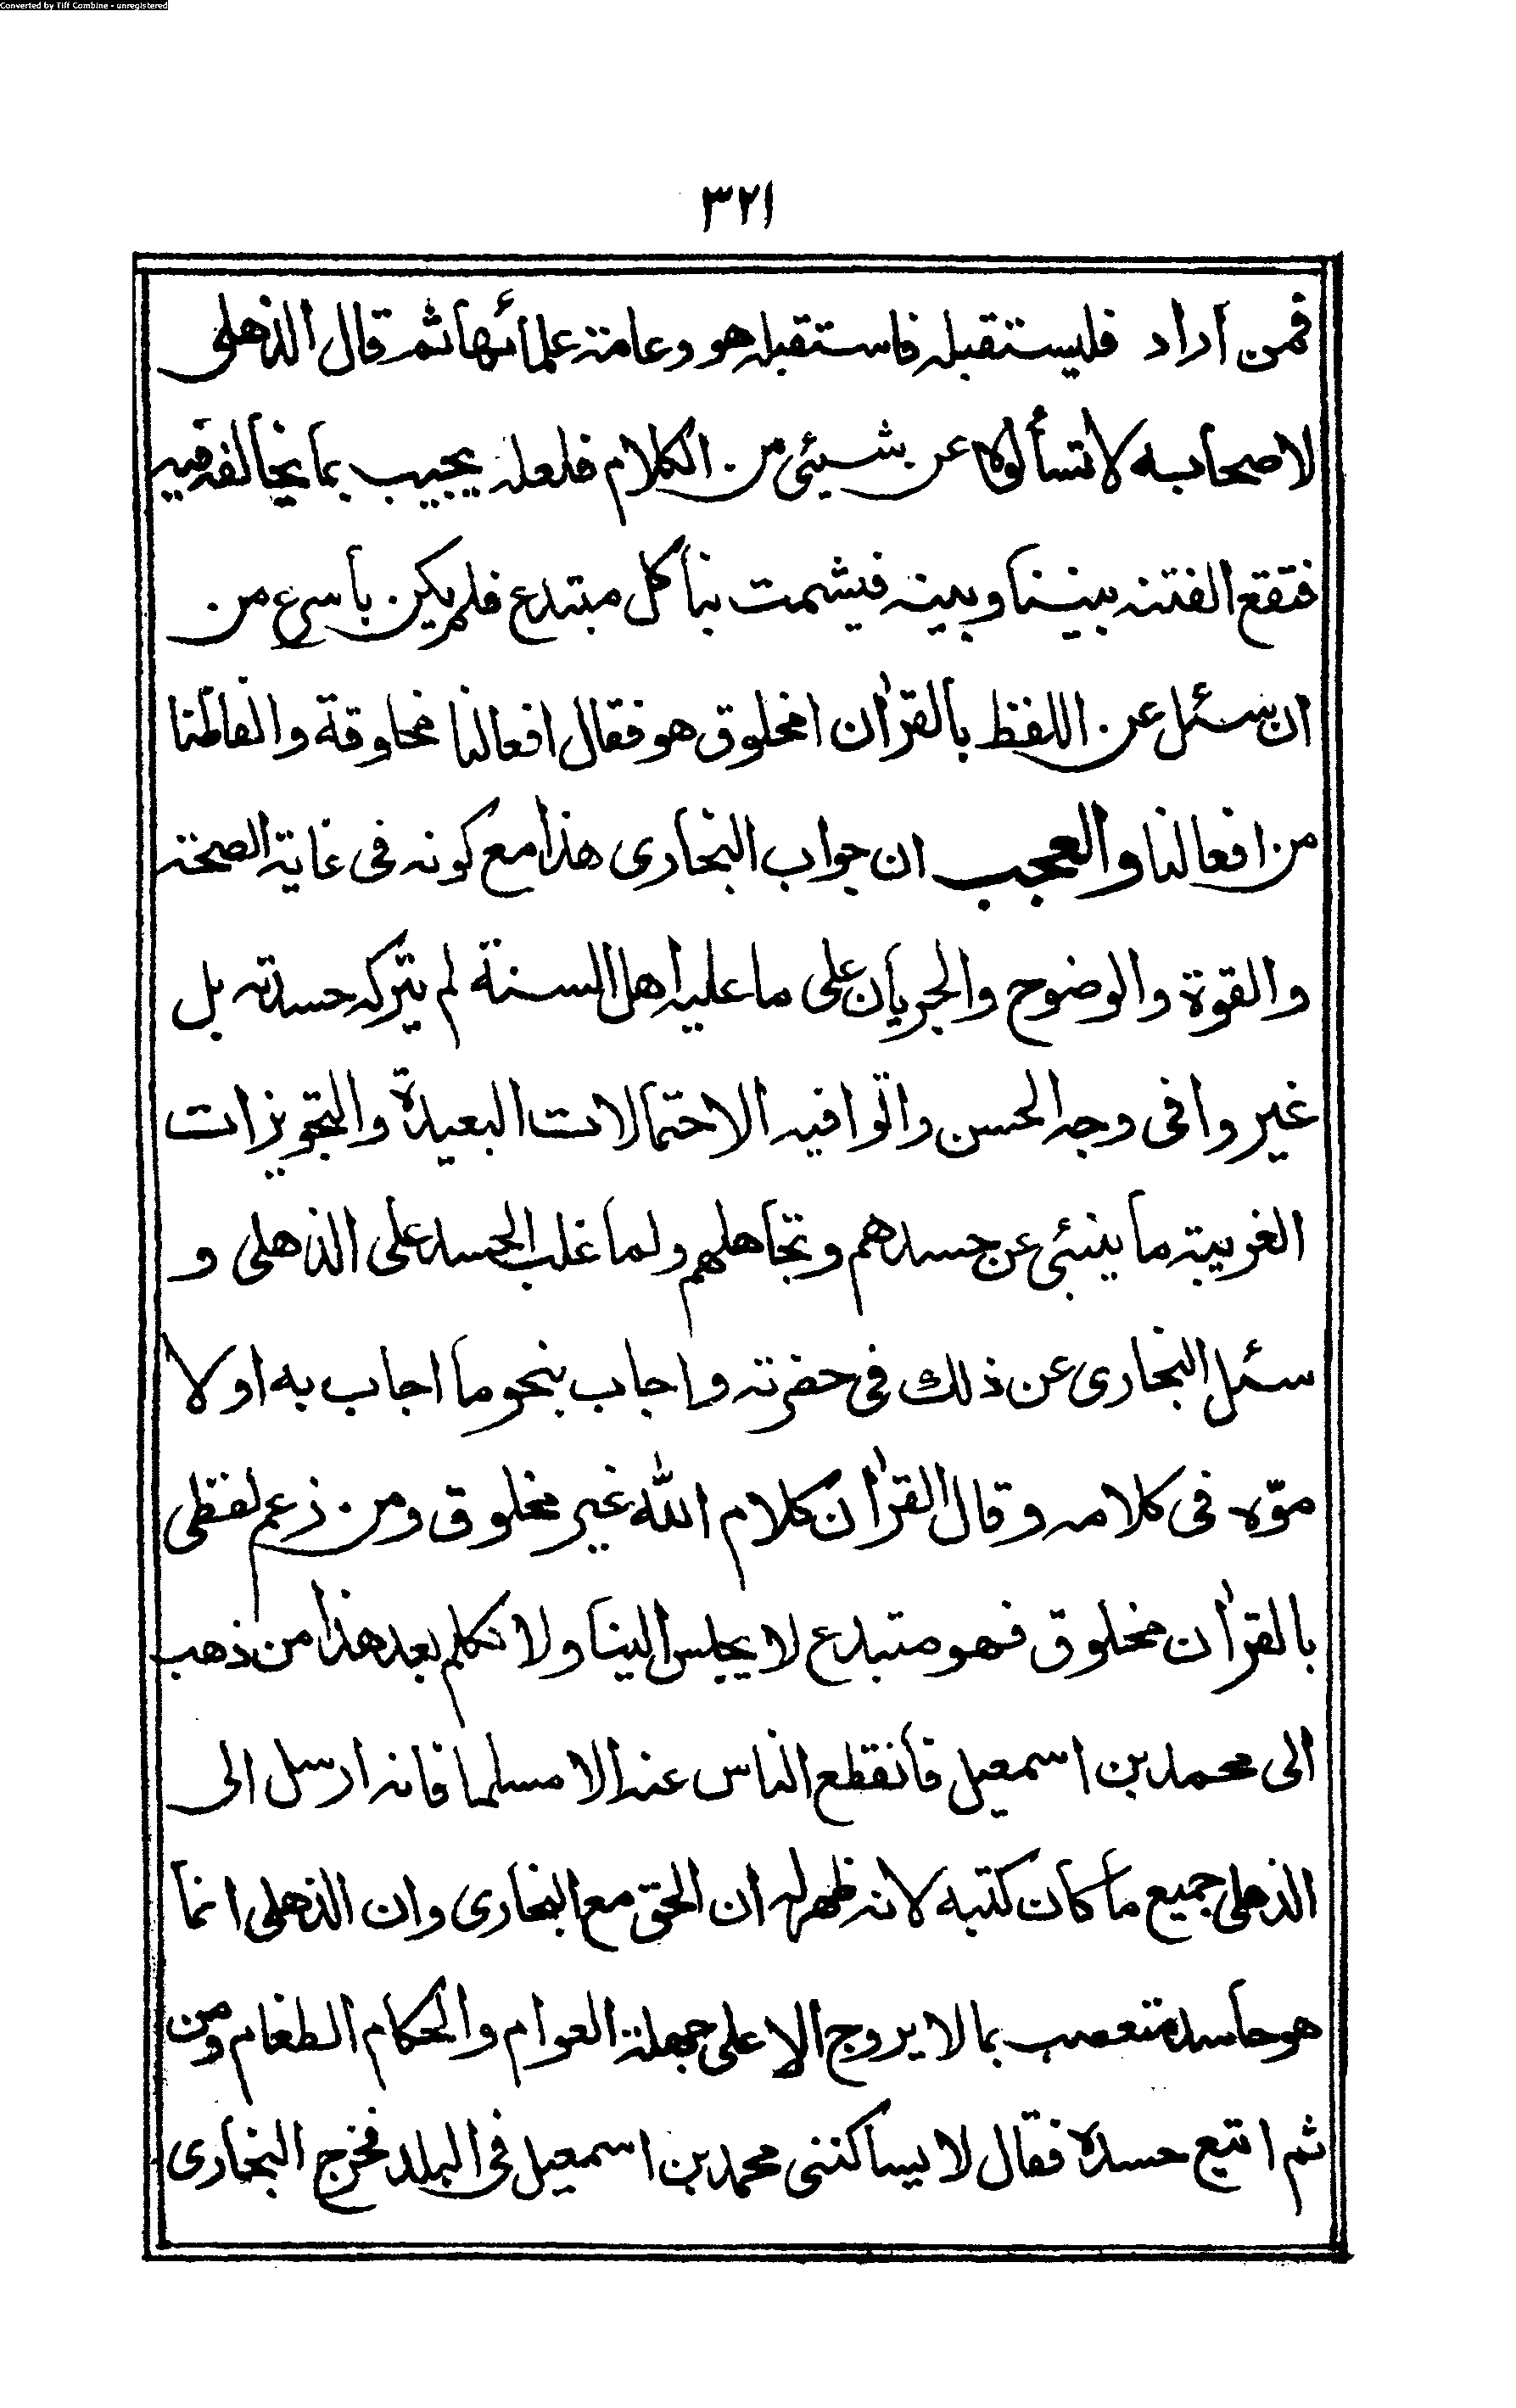 Converted by Tiff Combine - unregistered
٣٢١
فمن أراد فليستقبله فاستقبله هو وعامة علمائها ثم قال الذهلى
لاصحابه لا تسألوه عن شيئى من الكلام فلعله يجيب بما يخالفه فيه
فتقع الفتنه بيننا وبينه فيشمت بنا كل مبتدع فلم يكن باسرع من
ان سئل عن اللفظ بالقرآن امخلوق هو فقال افعالنا مخلوقة والفاظنا
من افعالنا والعجب ان جواب البخارى هذا مع كونه فى غاية الصحة
والقوة والوضوح والجريان على ما عليه اهل السنة لم يتركه حسدته بل
غيروا فى وجه الحسن واتوا فيه الاحتمالات البعيدة والتجويزات
الغريبة ما ينبئى عن حسدهم وتجاهلهم ولما غلب الحسد على الذهلى و
سئل البخارى عن ذلك فى حضرته واجاب بنحو ما اجاب به اولا
موّه فى كلامه وقال القرآن كلام الله غير مخلوق ومن زعم لفظى
بالقرآن مخلوق فهو متبدع لا يجلس الينا ولا نكلم بعد هذا من ذهب
الى محمد بن اسمعيل فانقطع الناس عنه الا مسلما فانه ارسل الى
الذهلى جميع ما كان كتبه لانه ظهر له ان الحق مع البخارى وان الذهلى انما
هو حاسد متعصب بما لا يروج الا على جهلة العوام والحكام الطغام ومن
ثم اتبع حسده فقال لا يساكننى محمد بن اسمعيل فى البلد فخرج البخارى